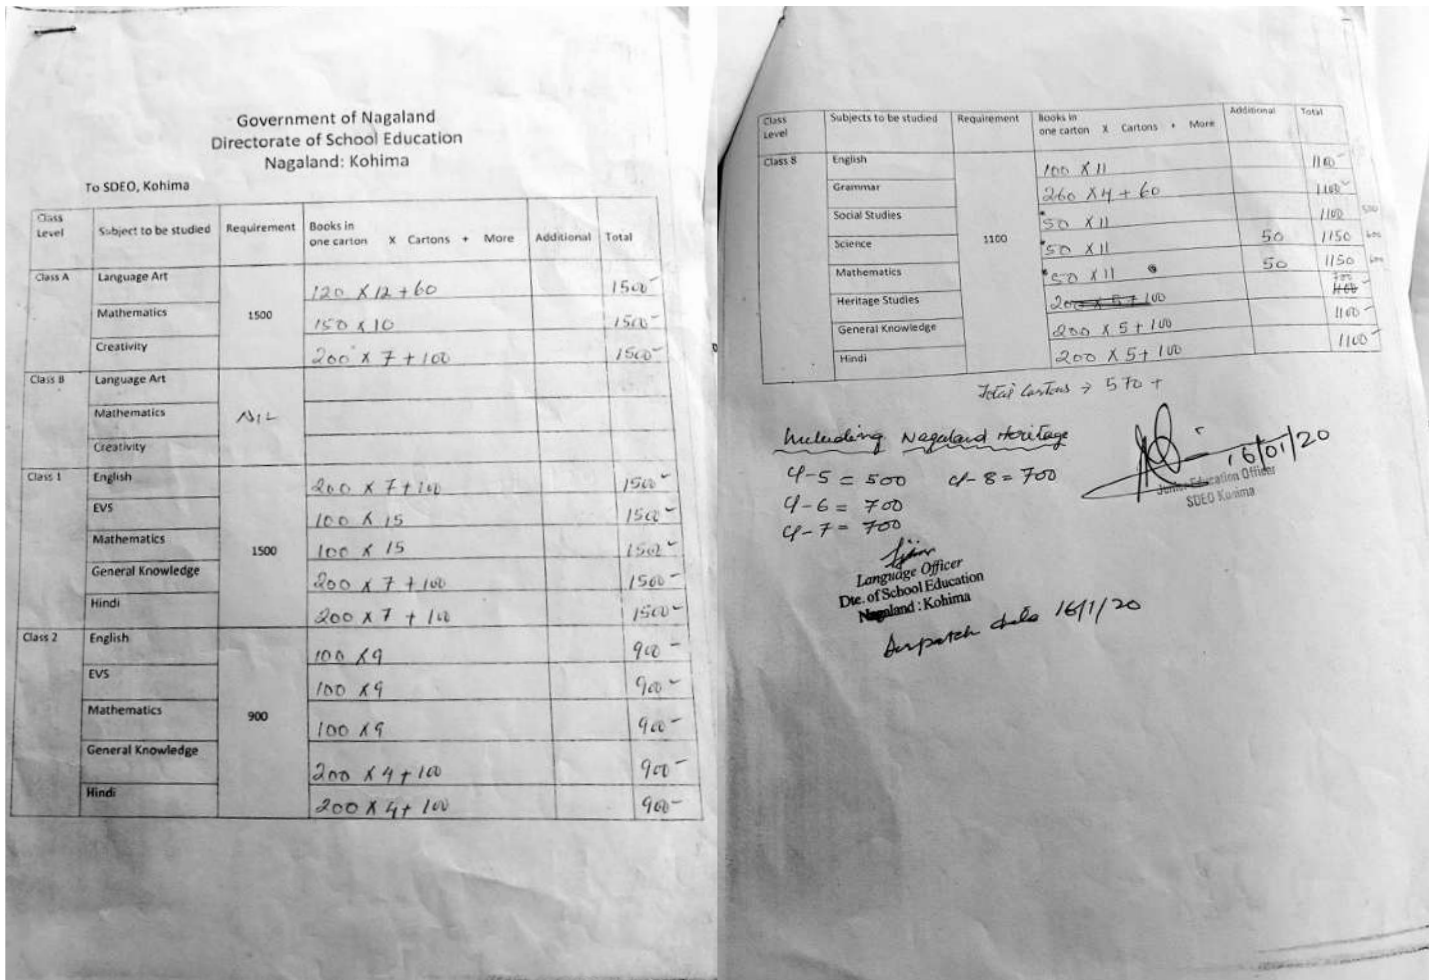 Government of Nagaland
Directorate of School Education
Nagaland: Kohima
To SDEO, Kohima
Class Level Subject to be studied Requirement Books in one carton X Cartons + More Additional Total
Class A Language Art 1500 120 X 12 + 60 1500
Mathematics 150 X 10 1500
Creativity 200 X 7 + 100 1500
Class B Language Art NIL
Mathematics
Creativity
Class 1 English 1500 200 X 7 + 100 1500
EVS 100 X 15 1500
Mathematics 100 X 15 1500
General Knowledge 200 X 7 + 100 1500
Hindi 200 X 7 + 100 1500
Class 2 English 900 100 X 9 900
EVS 100 X 9 900
Mathematics 100 X 9 900
General Knowledge 200 X 4 + 100 900
Hindi 200 X 4 + 100 900
Class Level Subjects to be studied Requirement Books in one carton X Cartons + More Additional Total
Class 8 English 1100 100 X 11 1100
Grammar 260 X 4 + 60 1100
Social Studies 50 X 11 1100
Science 50 X 11 50 1150
Mathematics 50 X 11 50 1150
Heritage Studies 200 X 5 + 100 700
General Knowledge 200 X 5 + 100 1100
Hindi 200 X 5 + 100 1100
Total Cartons → 570 +
Including Nagaland Heritage
Cl-5 = 500 cl-8 = 700
Cl-6 = 700
Cl-7 = 700
16/01/20
Junior Education Officer
SDEO Kohima
Language Officer
Dte. of School Education
Nagaland : Kohima
Despatch date 16/1/20